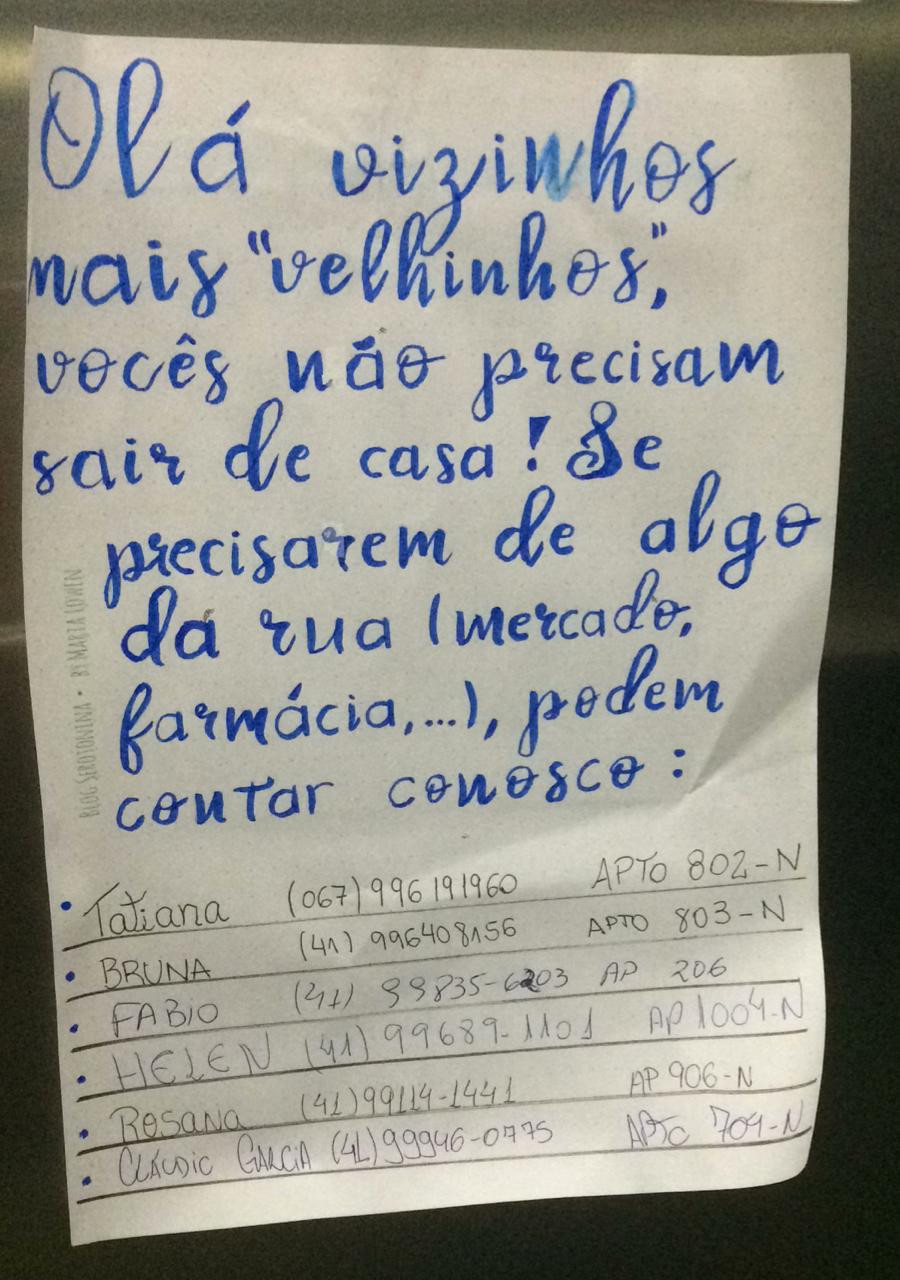 Olá vizinhos
mais "velhinhos",
vocês não precisam
sair de casa! Se
precisarem de algo
da rua (mercado,
farmácia,...), podem
contar conosco:
BLOG SEROTONINA • BY MARIA LOWEN
• Tatiana (067) 996191960 APTO 802-N
• BRUNA (41) 996408156 APTO 803-N
• FABIO (41) 99835-6203 AP 206
• HELEN (41) 99689-1101 AP 1004-N
• ROSANA (41) 99114-1441 AP 906-N
• CLÁUDIO GARCIA (41) 99946-0775 APTO 704-N